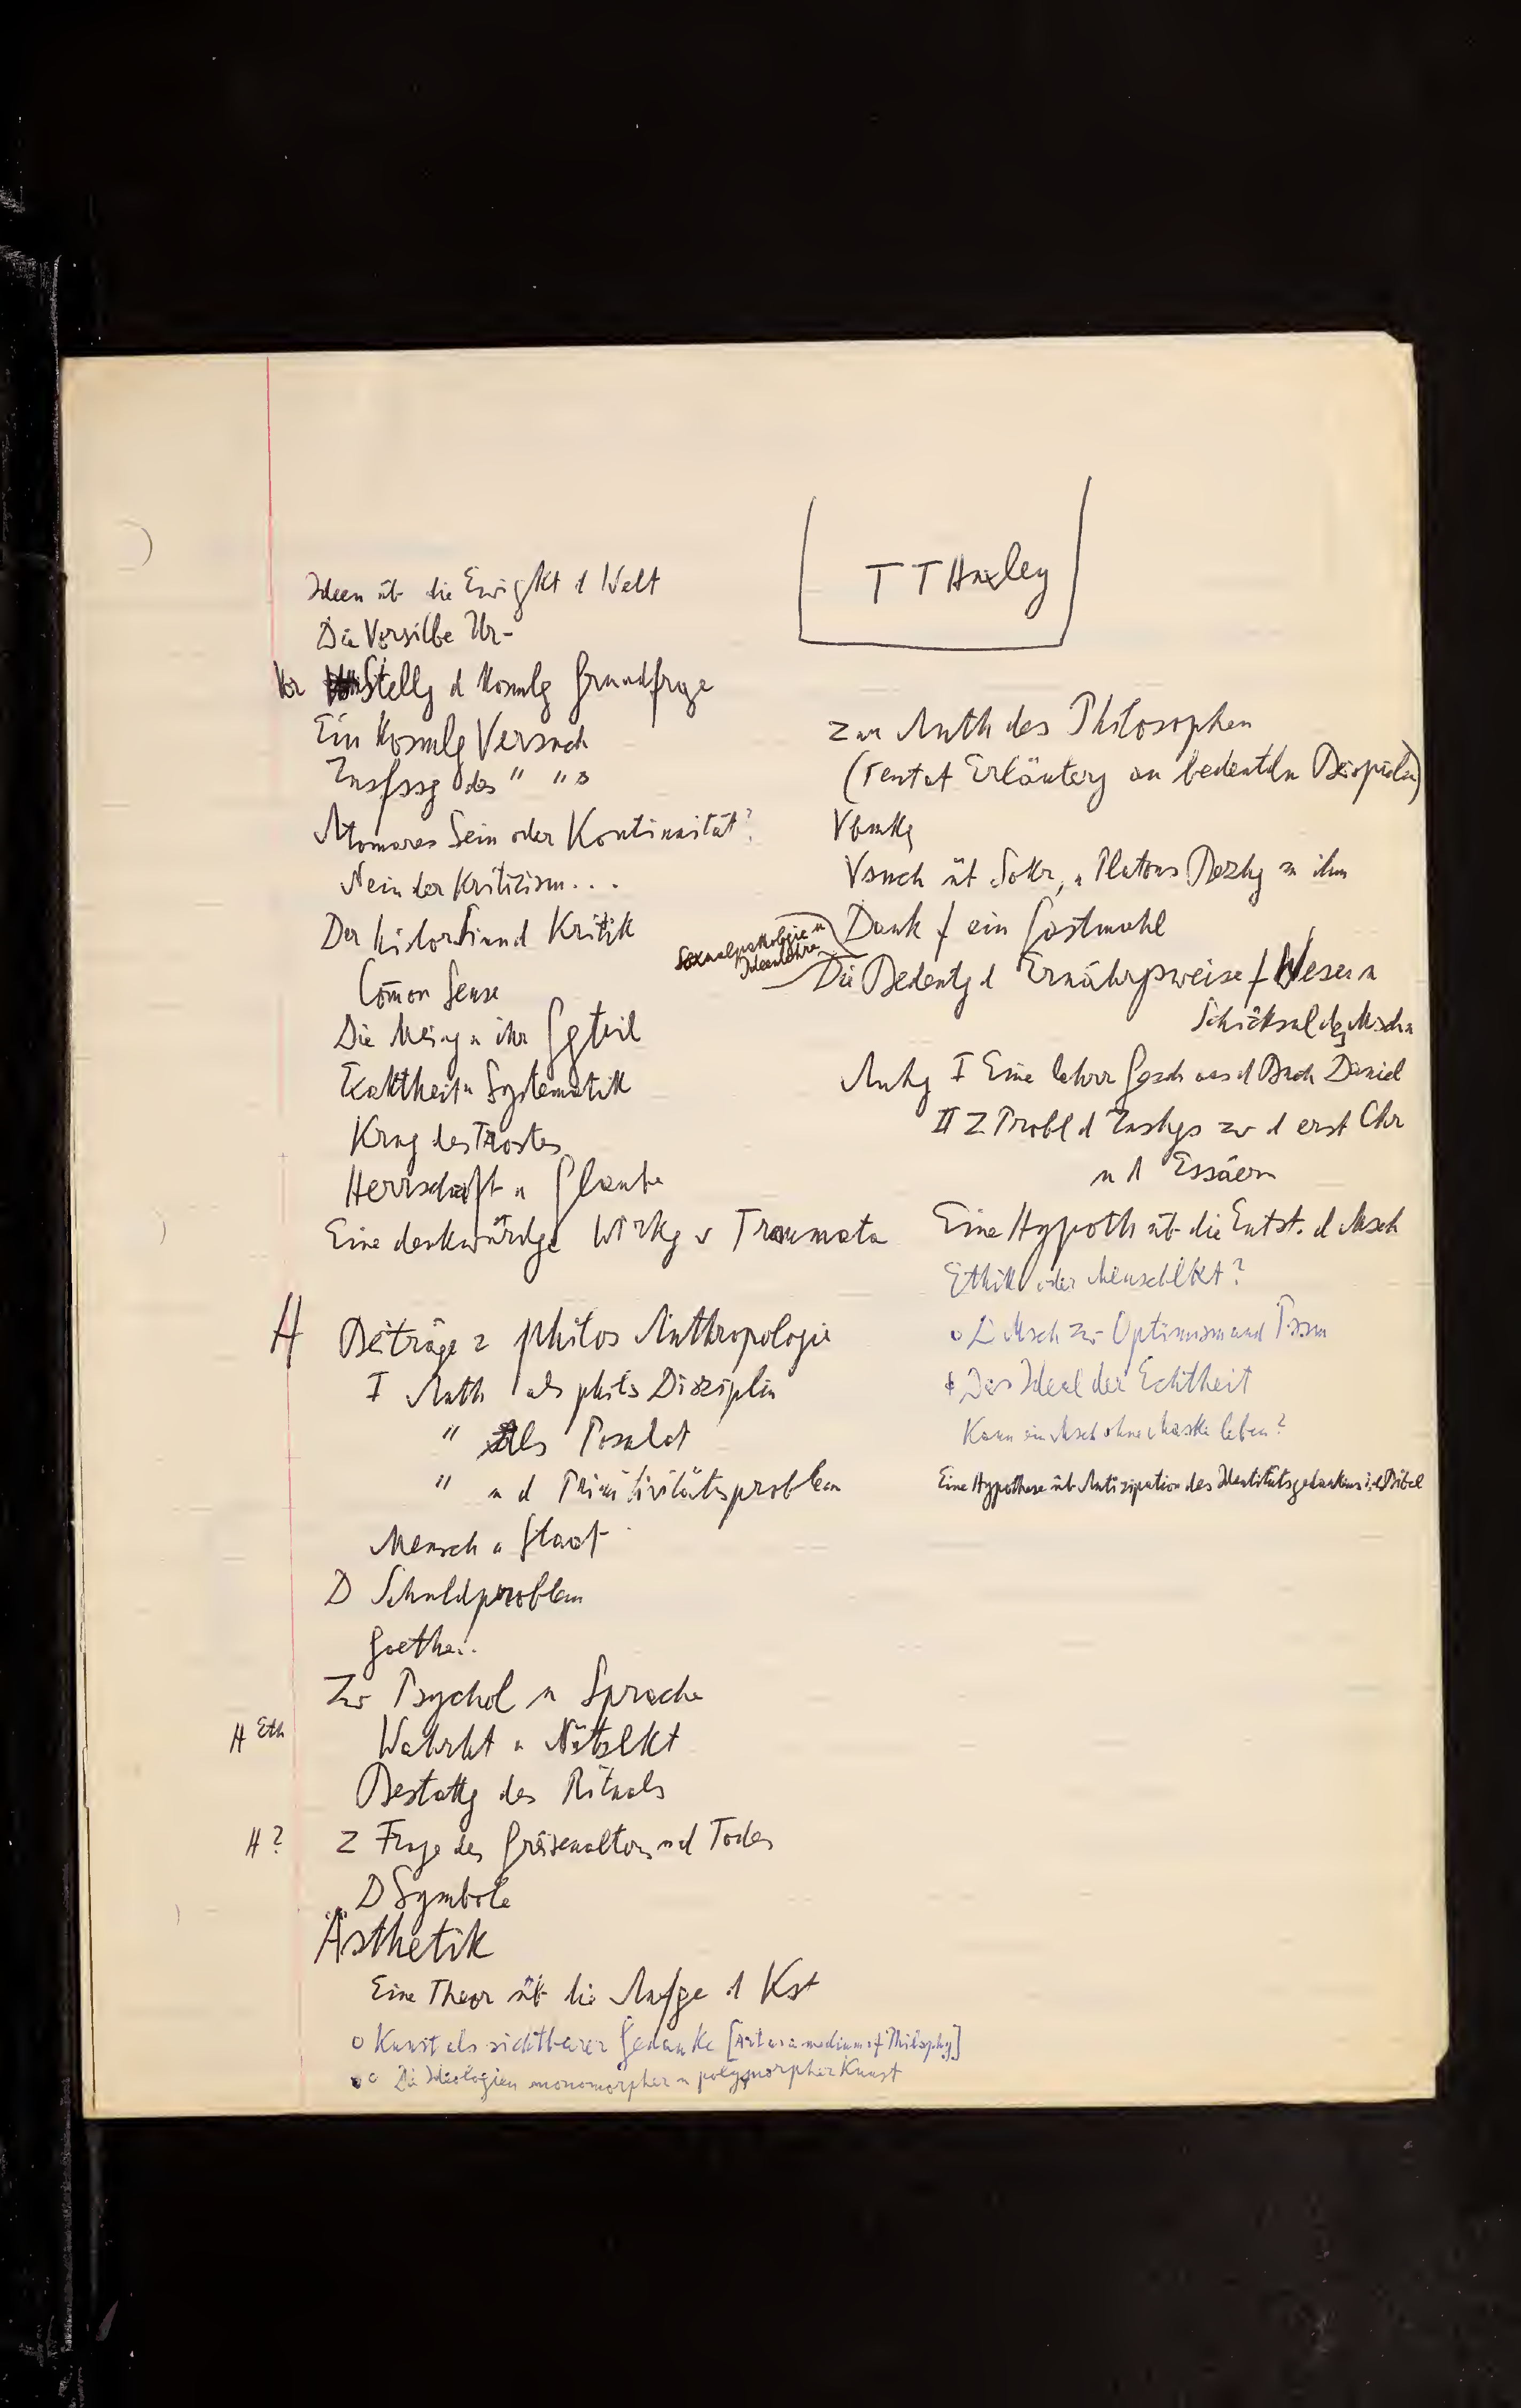 T T Huxley
Ideen üb die Ewigkt d Welt
Die Vorsilbe Ur-
Vor Stellg d Kosmlg Grundfrage
Ein Kosmlg Versuch
Zusfssg des " " s
Atomares Sein oder Kontinuität?
Nein der Kritizism...
Der histor Sinn d Kritik
Com̄on Sense
Die Meing u ihr Ggteil
Exaktheit u Systematik
Krug des Trostes
Herrschaft u Glaube
Eine denkwürdge Wirkg v Traumata
H Beiträge z philos Anthropologie
I Anth als philos Disziplin
" als Posulat
" u d Primitivitätsproblem
Mensch u Staat
D Schuldproblem
Goethe..
Zur Psychol u Sprache
H Eth Wahrht u Nützlkt
Bestattg des Rituals
H? Z Frage des Greisenalters u d Todes
D Symbole
Ästhetik
Eine Theor üb die Aufge d Kst
o Kunst als sichtbarer Gedanke [Art as a medium of Philosphy]
o Die Ideologien monomorpher u polymorpher Kunst
Zur Anth des Philosophen
(Tentat Erläuterg an bedeutdn Beispielen)
Vbmkg
Vsuch üb Sokr, u Platons Bezhg zu ihm
Dank f ein Gastmahl
Sexualpathologie u
Ideenlehre
Die Bedeutg d Ernährgsweise f Wesen u
Schicksal des Mschn
Anhg I Eine lehrr Gesch aus d Buch Daniel
II Z Probl d Zushgs zw d erst Chr
u d Essäern
Eine Hypoth üb die Entst. d Msch
Ethik oder Menschlkt?
o D Msch zw Optimism und Pssm
Das Ideal der Echtheit
Kann ein Msch ohne Maske leben?
Eine Hypothese üb Antizipation des Identitätsgedankens i d Bibel